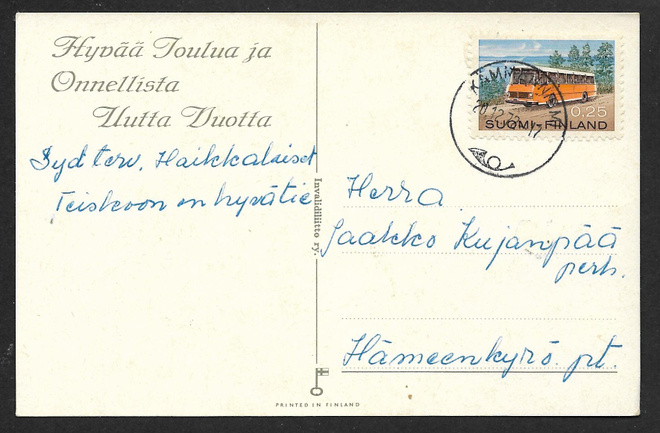 Hyvää Joulua ja
Onnellista
Uutta Vuotta
Syd terv. Haikkalaiset
Teiskoon on hyvätie
Invalidiliitto ry.
0.25
SUOMI-FINLAND
Herra
Jaakko Kujanpää
perh.
Hämeenkyrö. pt.
PRINTED IN FINLAND